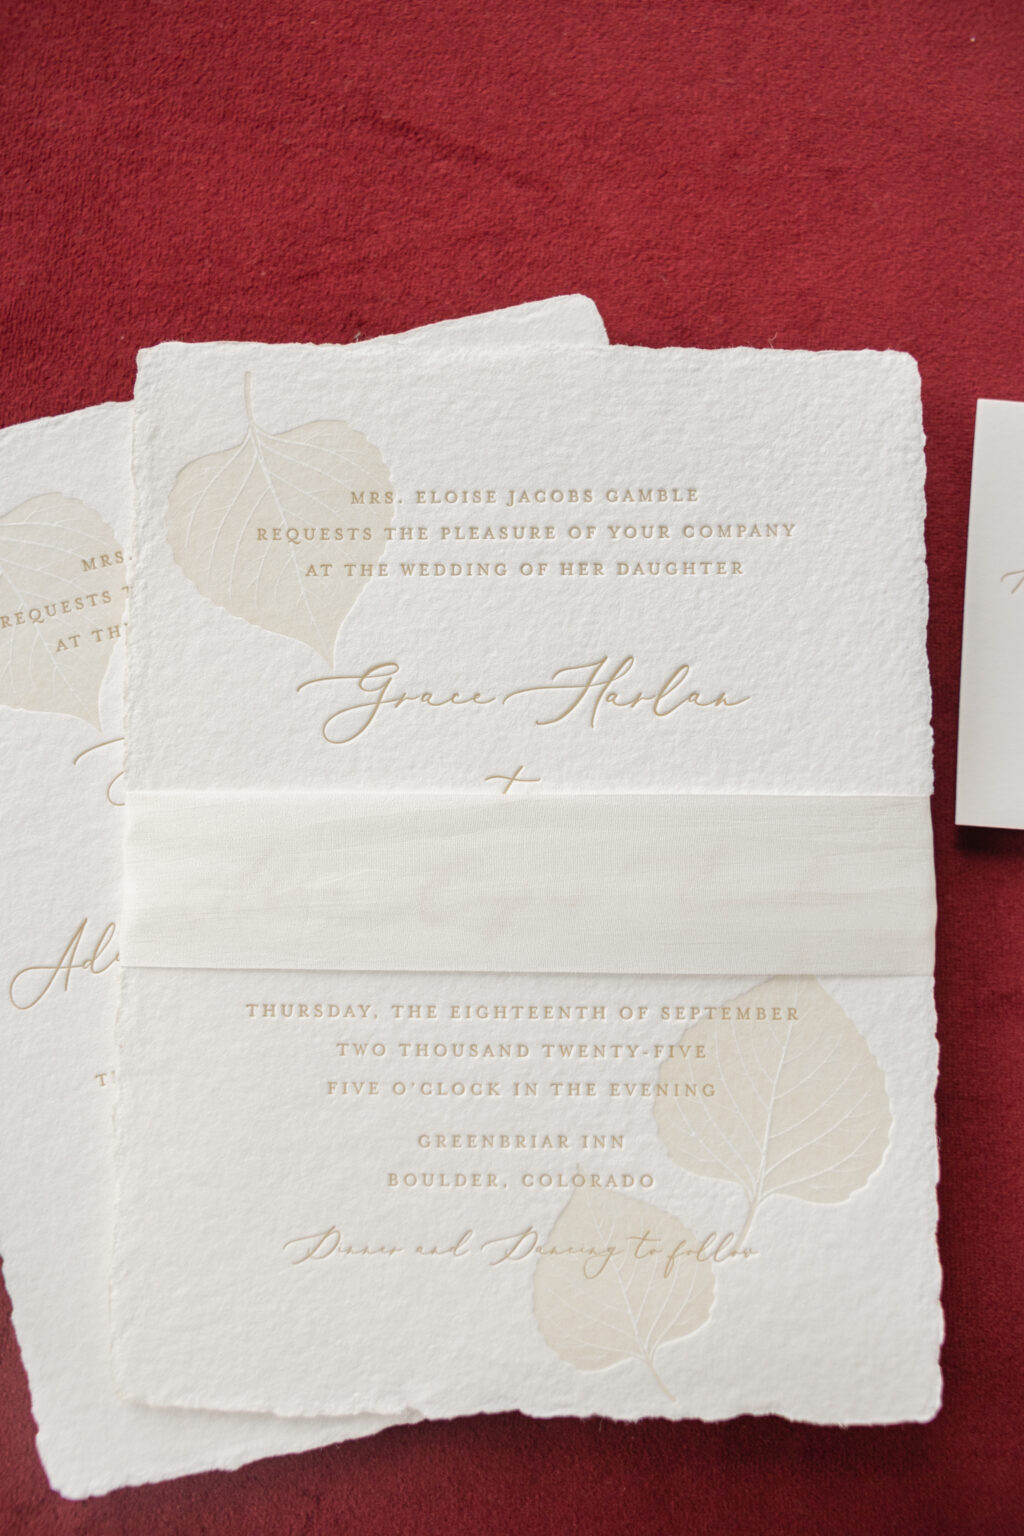 MRS. ELOISE JACOBS GAMBLE
REQUESTS THE PLEASURE OF YOUR COMPANY
AT THE WEDDING OF HER DAUGHTER
Grace Harlan
+
THURSDAY, THE EIGHTEENTH OF SEPTEMBER
TWO THOUSAND TWENTY-FIVE
FIVE O'CLOCK IN THE EVENING
GREENBRIAR INN
BOULDER, COLORADO
Dinner and Dancing to follow
MRS.
REQUESTS
AT